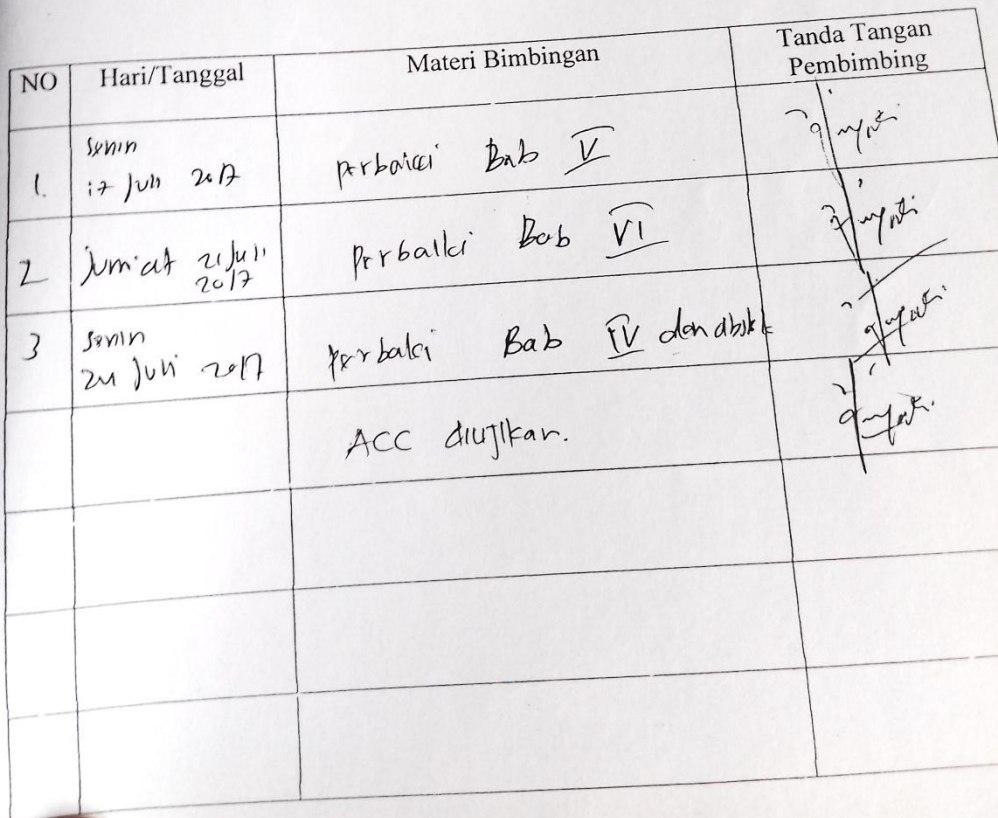 NO Hari/Tanggal Materi Bimbingan Tanda Tangan
Pembimbing
Senin
1. 17 Juli 2017 perbaiki Bab V
2 Jum'at 21 Juli
2017 Perbaiki Bab VI
3 Senin
24 Juli 2017 perbaiki Bab IV dan
ACC diujikan.